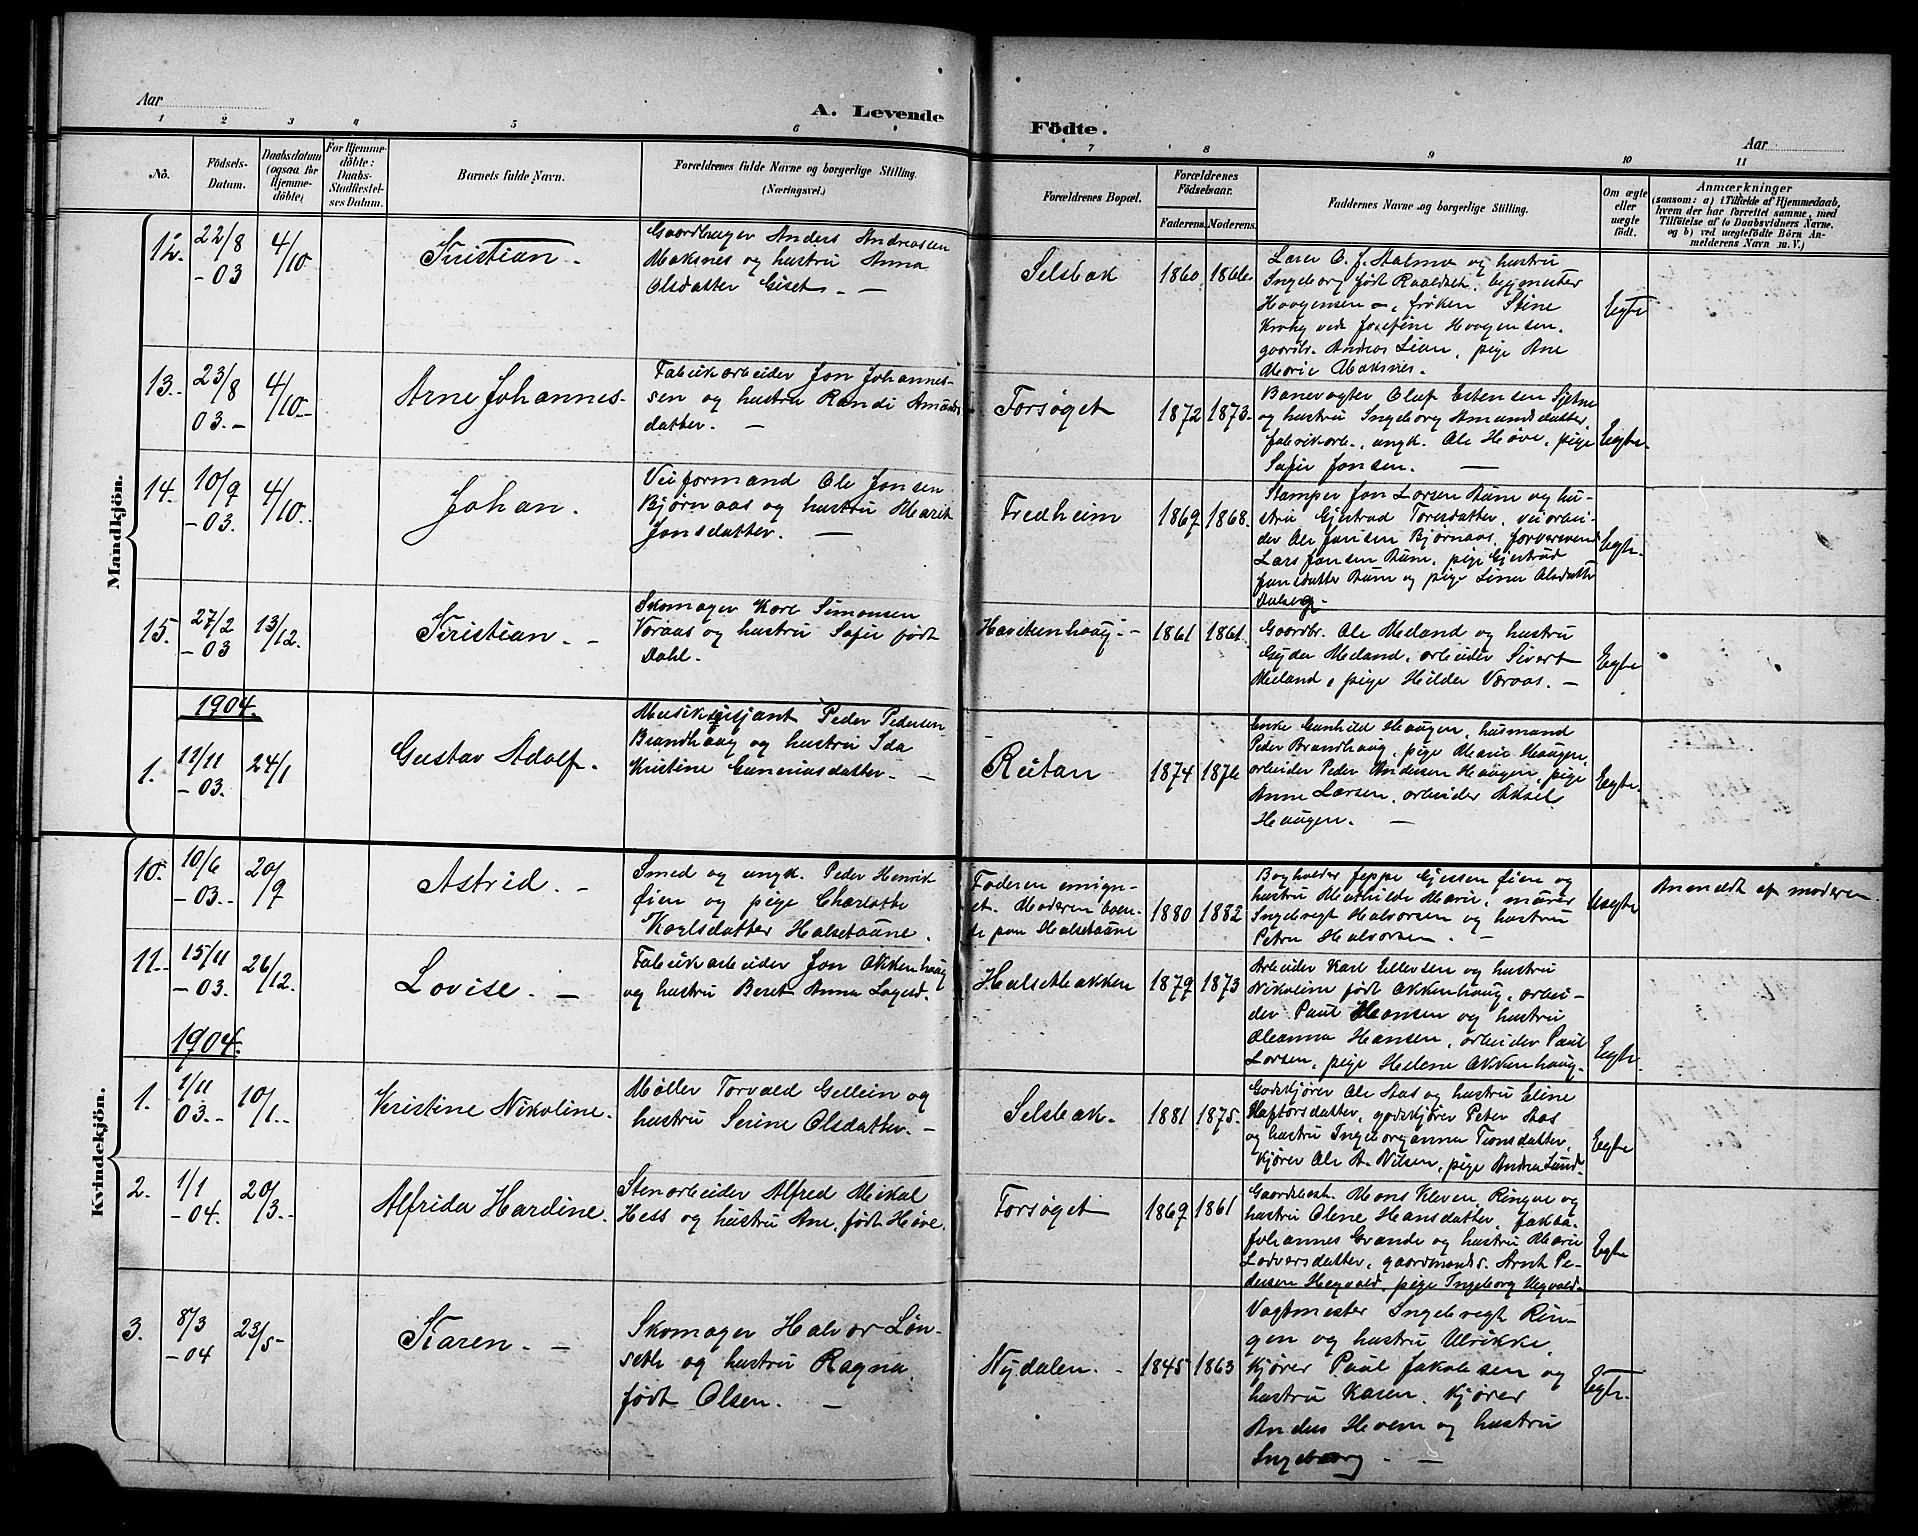 Aar
A. Levende
Födte.
Aar
1 2 3 4 5 6 7 8 9 10 11
No.
Födsels-
Datum.
Daabsdatum
(ogsaa for
Hjemme-
döbte)
For Hjemme-
döbte:
Daabs-
Stadfæstel-
ses Datum.
Barnets fulde Navn.
Forældrenes fulde Navne og borgerlige Stilling.
(Næringsvei.)
Forældrenes Bopæl.
Forældrenes
Födselsaar.
Faderens. Moderens.
Faddernes Navne og borgerlige Stilling.
Om ægte
eller
uægte
födt.
Anmærkninger
(saasom: a) i Tilfælde af Hjemmedaab,
hvem der har forrettet samme, med
Tilföielse af to Daabsvidners Navne.
og b) ved uægtefödte Börn An-
melderens Navn m. V.)
Mandkjön.
12. 22/8 - 03 4/10 Kristian. -
Gaardbruger Anders Andreassen
Maksnes og hustru Anna
Olsdatter Giset. -
Selsbak 1860 1866.
Lærer O. J. Stalmo og hustru
Ingeborg født
Haagensen, frøken Stine
Krohg ved Josefine Haagensen.
gaardbr. Andreas Lian, pige Ane
Marie Maksnes.
Egte
13. 23/8 03. - 4/10 - Arne Johannes.
Fabrikarbeider Jon Johannes-
sen og hustru Randi Amunds
datter. -
Forsøget 1872 1873.
Banevogter Oluf Estensen Sjetne
og hustru Ingeborg Amundsdatter,
fabrikarb., ungk. Ole Høve, pige
Sofie Jonsen. -
Egte.
14. 10/9 - 03. 4/10. Johan.
Veiformand Ole Jonsen
Bjørnaas og hustru Marit
Jonsdatter. -
Fredheim 1869 1868.
Stamper Jon Larsen Rüm og hu-
stru Gjertrud Toresdatter, veiarbei-
der Ole Jonsen Bjørnaas,
Lars Jonsen Rüm, pige Gjertrud
Jonsdatter Rüm og pige Lina Olsdatter
Egte.
15. 27/2 - 03 13/12. Kristian. -
Skomager Karl Simonsen
Voraas og hustru Sofie født
Dahl.
Havekenhaug. - 1861 1861.
Gaardbr. Ole Meland og hustru
Gjda Meland, arbeider Sivert
Meland, pige Hilda Voraas. -
Egte
1904.
1. 11/11 - 03. 24/1 Gustav Adolf.
Musiksersjant Peder Pedersen
Brandhaug og hustru Ida
Kristine Guneriusdatter. -
Rütan 1874 1876
Enke Gunhild Haugen, husmand
Peder Brandhaug, pige Marie Haugen,
arbeider Peder Andersen Haugen, pige
Anne Larsen, arbeider Aksel
Haugen. -
Egte.
Kvindekjön.
10. 10/6 - 03. - 20/9 Astrid. -
Smed og ungk. Peder Henrik
Øien og pige Charlotte
Karlsdatter Halsetaune.
Faderen emigre-
et. Moderen boen-
de paa Halsetaune
1880 1882
Bogholder Jeppe Gjessen Øien og
hustru Mathilde Marie, murer
Ingebregt Halvorsen og hustru
Petra Halvorsen. -
Uegte
Anmeldt af moderen.
11. 15/11 - 03. 26/12. Lovise. -
Fabrikarbeider Jon Okkenhaug
og hustru Beret Anna
Halsetbakken 1879 1873
Arbeider Karl Ellevsen og hustru
Nikoline født Okkenhaug, arbei-
der Paul Hansen og hustru
Oleanna Hansen, arbeider Paul
Larsen, pige Helene Okkenhaug.
Egte.
1904.
1. 1/11 03. - 10/1. - Kristine Nikoline.
Møller Torvald Gellein og
hustru Serine Olsdatter. -
Selsbak. 1881 1875.
Godskjører Ole Aas og hustru Eline
Haftorsdatter, godskjører Peter Aas
og hustru Ingeborganna Tronsdatter,
kjører Ole A. Nilsen, pige Andrea Lund
Egte
2. 1/1 - 04. 20/3. - Alfrida Hardine.
Stenarbeider Alfred Mikal
Hess og hustru Ane, født Høve.
Forsøget 1869 1861
Gaardbest. Mons Kleven, Ringve og
hustru Olene Hansdatter,
Johannes Grande og hustru Marie
Lodversdatter, gaardmands. Arnt Pe-
dersen Hegvold, pige Ingeborg Hegvold.
Egte
3. 8/3 - 04 23/5 - Karen. -
Skomager Halvor Løn-
seth og hustru Ragna.
født Olsen. -
Nydalen. - 1845 1863
Vagtmester Ingebregt Rin-
gen og hustru Ulrikke.
kjører Paul Jakobsen og
hustru Karen. kjører
Anders Hoem og hustru
Ingeborg. -
Egte.